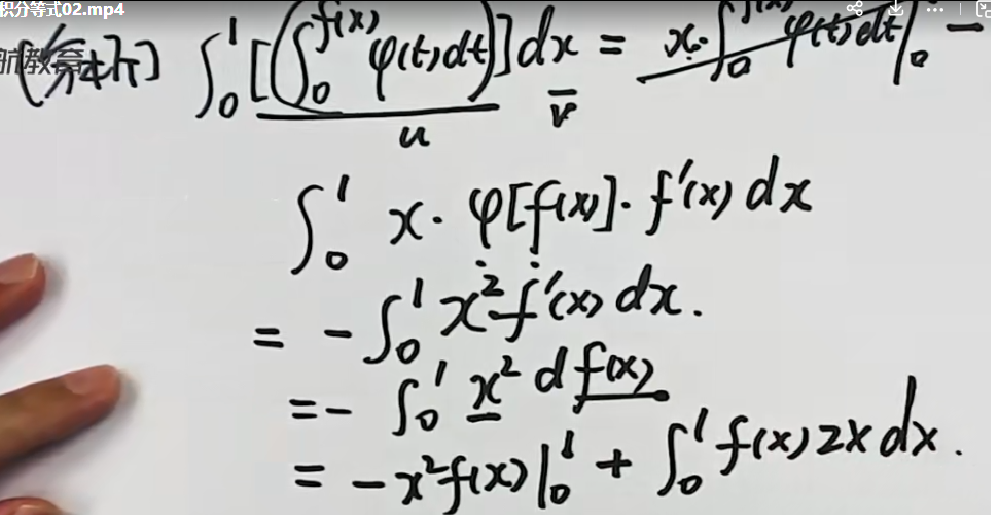 积分等式02.mp4
航教育
[分析] ∫₀¹[(∫₀^{f(x)} φ(t)dt)]dx = x·∫₀^{f(x)} φ(t)dt|₀ −
u v
∫₀¹ x·φ[f(x)]·f′(x)dx
= −∫₀¹ x²f′(x)dx.
=− ∫₀¹ x² d f(x)
= −x²f(x)|₀¹ + ∫₀¹ f(x)2xdx.